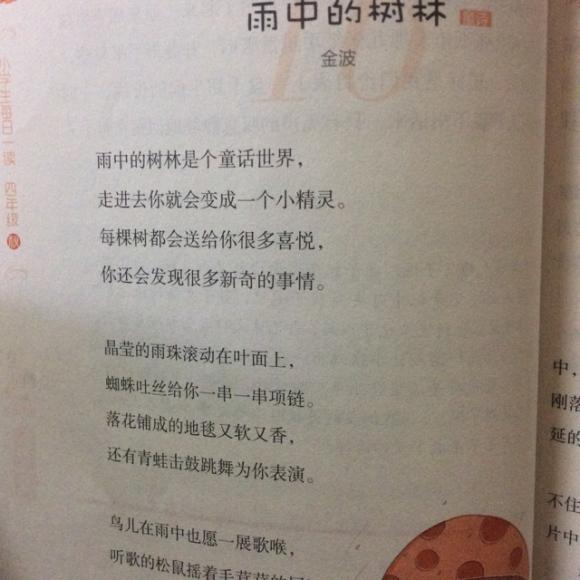 雨中的树林
童诗
金波
小学生每日一读 四年级 秋
雨中的树林是个童话世界，
走进去你就会变成一个小精灵。
每棵树都会送给你很多喜悦，
你还会发现很多新奇的事情。
晶莹的雨珠滚动在叶面上，
蜘蛛吐丝给你一串一串项链。
落花铺成的地毯又软又香，
还有青蛙击鼓跳舞为你表演。
鸟儿在雨中也愿一展歌喉，
听歌的松鼠摇着毛茸茸的尾
中，
刚落
延的
不住
片中